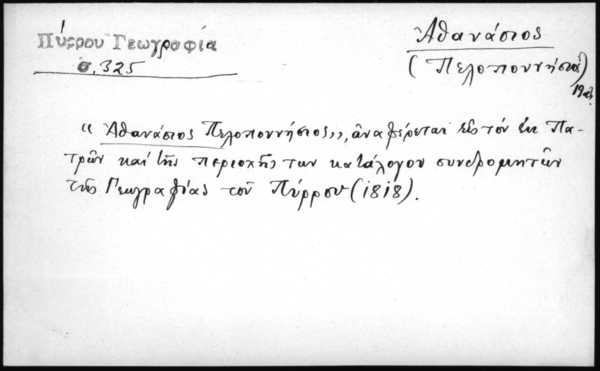 Πύρρου Γεωγραφία
σ. 325
Ἀθανάσιος
(Πελοποννήσιος)
"Ἀθανάσιος Πελοποννήσιος,, ἀναφέρεται εἰς τόν ἐκ Πα-
τρῶν καί τῆς περιοχῆς των κατάλογον συνδρομητῶν
τῆς Γεωγραφίας τοῦ Πύρρου (1818).